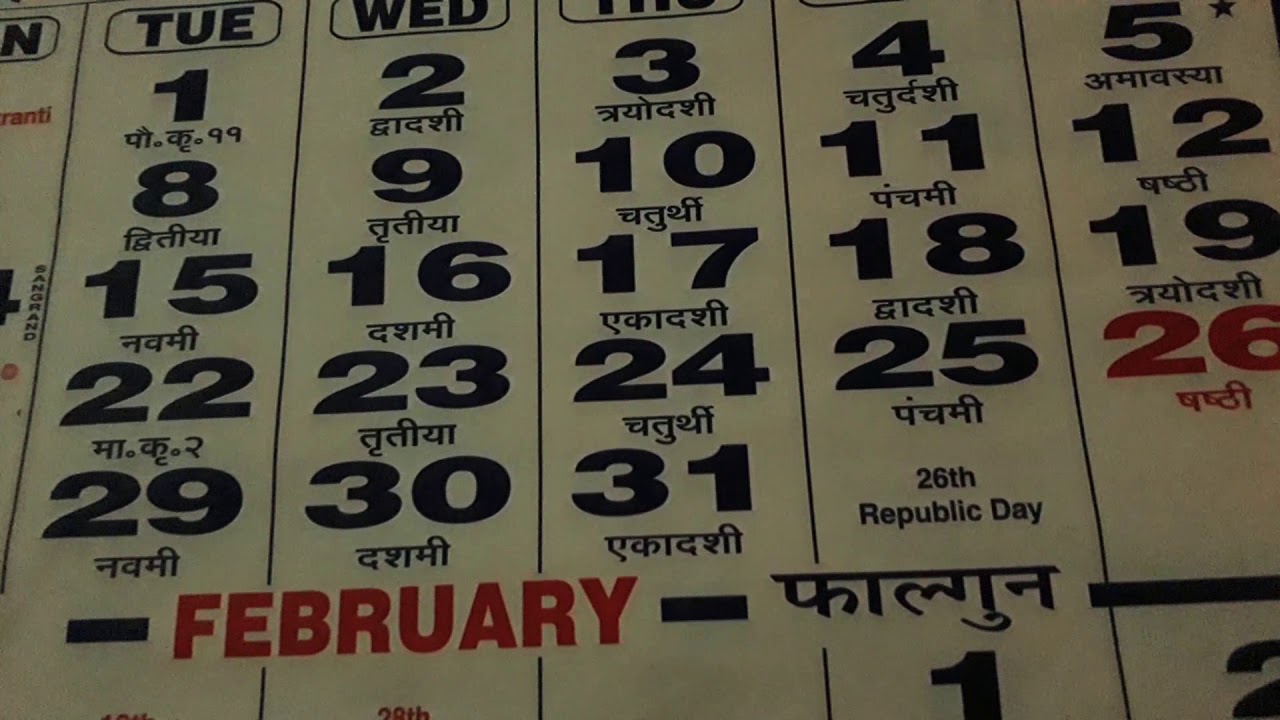 TUE WED THU
1 2 3 4 5
पौ.कृ.११ द्वादशी त्रयोदशी चतुर्दशी अमावस्या
ranti
8 9 10 11 12
द्वितीया तृतीया चतुर्थी पंचमी षष्ठी
15 16 17 18 19
SANGRAND
नवमी दशमी एकादशी द्वादशी त्रयोदशी
22 23 24 25 26
मा.कृ.२ तृतीया चतुर्थी पंचमी षष्ठी
29 30 31
26th
Republic Day
नवमी दशमी एकादशी
FEBRUARY फाल्गुन
1 2
28th